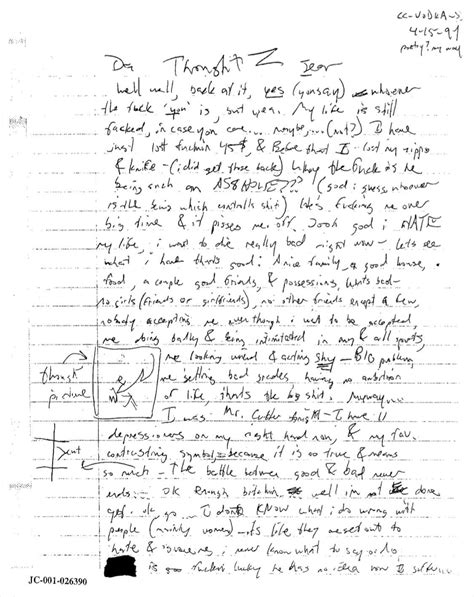 CC-VoDKA-S
4-15-97
poetry? my way
Thought
well well, back at it, yes (you say) whoever
the fuck 'you' is, but yea. My life is still
fucked, in case you care... maybe,... (not?) I have
just lost fuckin 45$, & Before that I lost my zippo
& knife - (i did get those back) Why the fuck is he
being such an ASSHOLE??? (god i guess, whoever
is the being which controls shit) He's fucking me over
big time & it pisses me off. Oooh god i HATE
my life, i want to die really bad right now - lets see
what i have thats good: A nice family, a good house,
food, a couple good friends, & possessions, Whats bad-
no girls (friends or girlfriends), no other friends except a few,
nobody accepting me even though i want to be accepted,
me doing badly & being intimidated in any & all sports,
me looking weird & acting shy - BIG problem,
me getting bad grades, having no ambition
of life, thats the big shit. Anyway...
I was Mr. Cutter tonight - I have 11
depressioners on my right hand now, & my fav.
contrasting symbol, because it is so true & means
so much - The battle between good & bad never
ends... OK enough bitchin well im not done
yet. ok go... I dont KNOW what i do wrong with
people (mainly women) - its like they are set out to
hate & me, i never know what to say or do.
is fuckin lucky he has no idea how I suffer
Thought
picture
cut
JC-001-026390